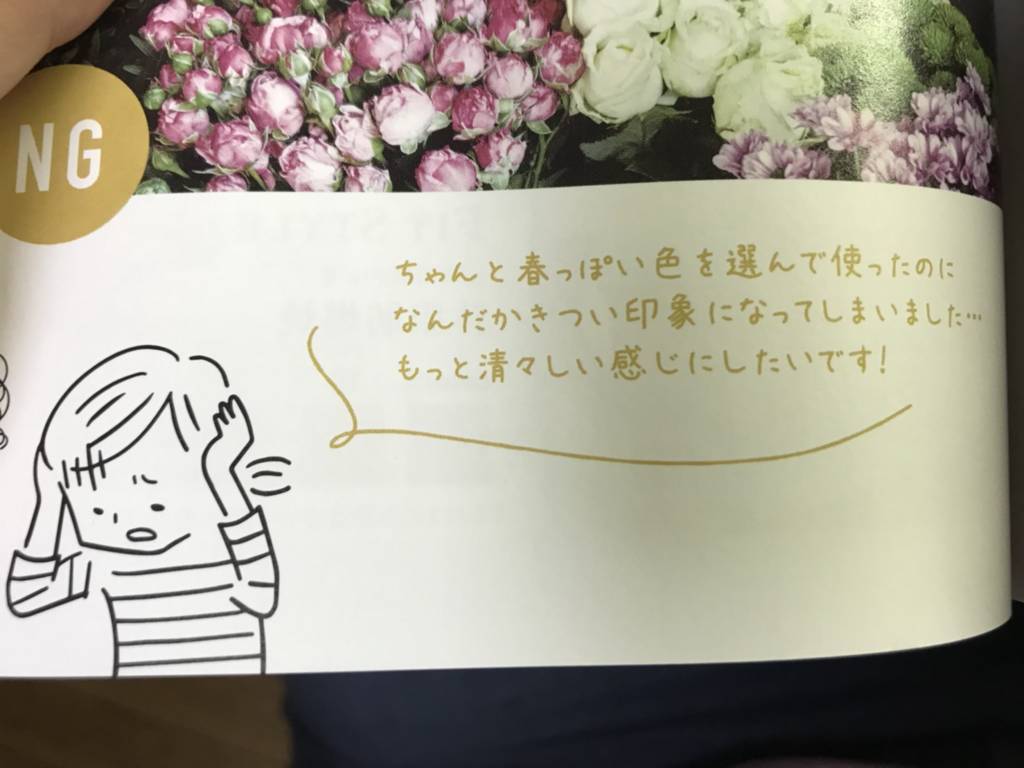 NG
ちゃんと春っぽい色を選んで使ったのに
なんだかきつい印象になってしまいました…
もっと清々しい感じにしたいです!